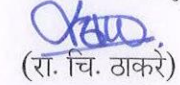 (रा. चि. ठाकरे)